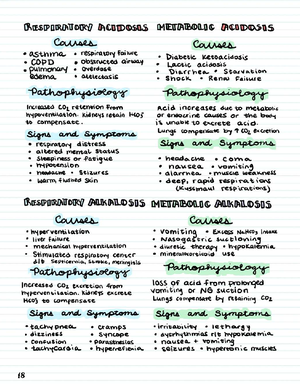 RESPIRATORY ACIDOSIS
Causes
• asthma • respiratory failure
• COPD • obstructed airway
• pulmonary • overdose
edema • atelectasis
Pathophysiology
Increased CO₂ retention from
hypoventilation. Kidneys retain HCO₃
to compensate.
Signs and Symptoms
• respiratory distress
• altered mental status
• sleepiness or fatigue
• hypotension
• headache • seizures
• warm flushed skin
METABOLIC ACIDOSIS
Causes
• Diabetic Ketoacidosis
• Lactic acidosis
• Diarrhea • Starvation
• Shock • Renal Failure
Pathophysiology
Acid increases due to metabolic
or endocrine causes or the body
is unable to excrete acid.
Lungs compensate by ↑ CO₂ excretion
Signs and Symptoms
• headache • coma
• nausea • vomiting
• diarrhea • muscle weakness
• deep, rapid respirations
(Kussmaul respirations)
RESPIRATORY ALKALOSIS
Causes
• hyperventilation
• liver failure
• mechanical hyperventilation
• Stimulated respiratory center
d/t septicemia, stroke, meningitis
Pathophysiology
Increased CO₂ excretion from
hyperventilation. Kidneys excrete
HCO₃ to compensate
Signs and Symptoms
• tachypnea • cramps
• dizziness • syncope
• confusion • paresthesias
• tachycardia • hyperreflexia
METABOLIC ALKALOSIS
Causes
• Vomiting • Excess NaHCO₃ intake
• Nasogastric suctioning
• diuretic therapy • hypokalemia
• mineralocorticoid use
Pathophysiology
loss of acid from prolonged
vomiting or NG suction
Lungs compensate by retaining CO₂
Signs and Symptoms
• irritability • lethargy
• dysrhythmias r/t hypokalemia
• nausea • vomiting
• seizures • hypertonic muscles
18